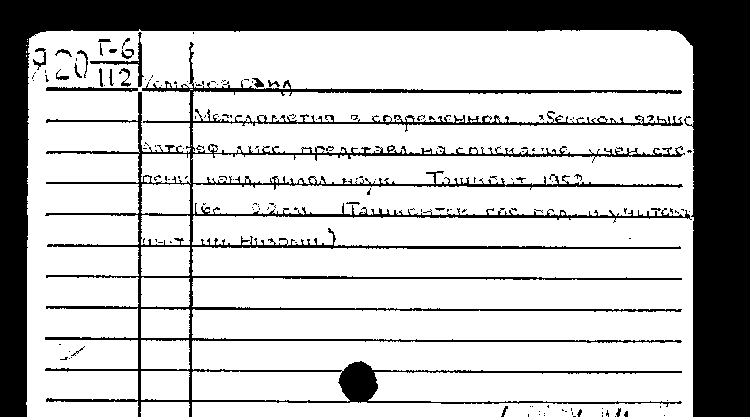 Я20 Т-6
112
Усманов, Саид
Междометия в современном узбекском языке
Автореф. дисс., представл. на соискание учен. сте-
пени канд. филол. наук. Ташкент, 1952.
16с. 22см. (Ташкентск. гос. пед. и учительск.
ин-т им. Низами.)